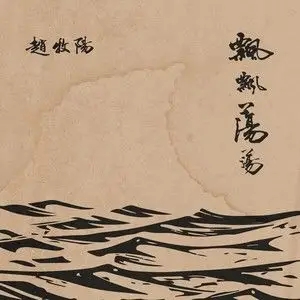 趙牧陽
飄飄蕩蕩